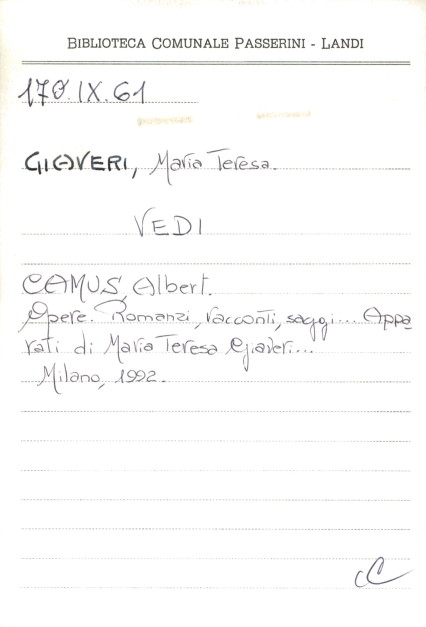 BIBLIOTECA COMUNALE PASSERINI - LANDI
170.IX.61
GIAVERI, Maria Teresa.
VEDI
CAMUS, Albert.
Opere. Romanzi, racconti, saggi... Appa
rati di Maria Teresa Giaveri...
Milano, 1992.